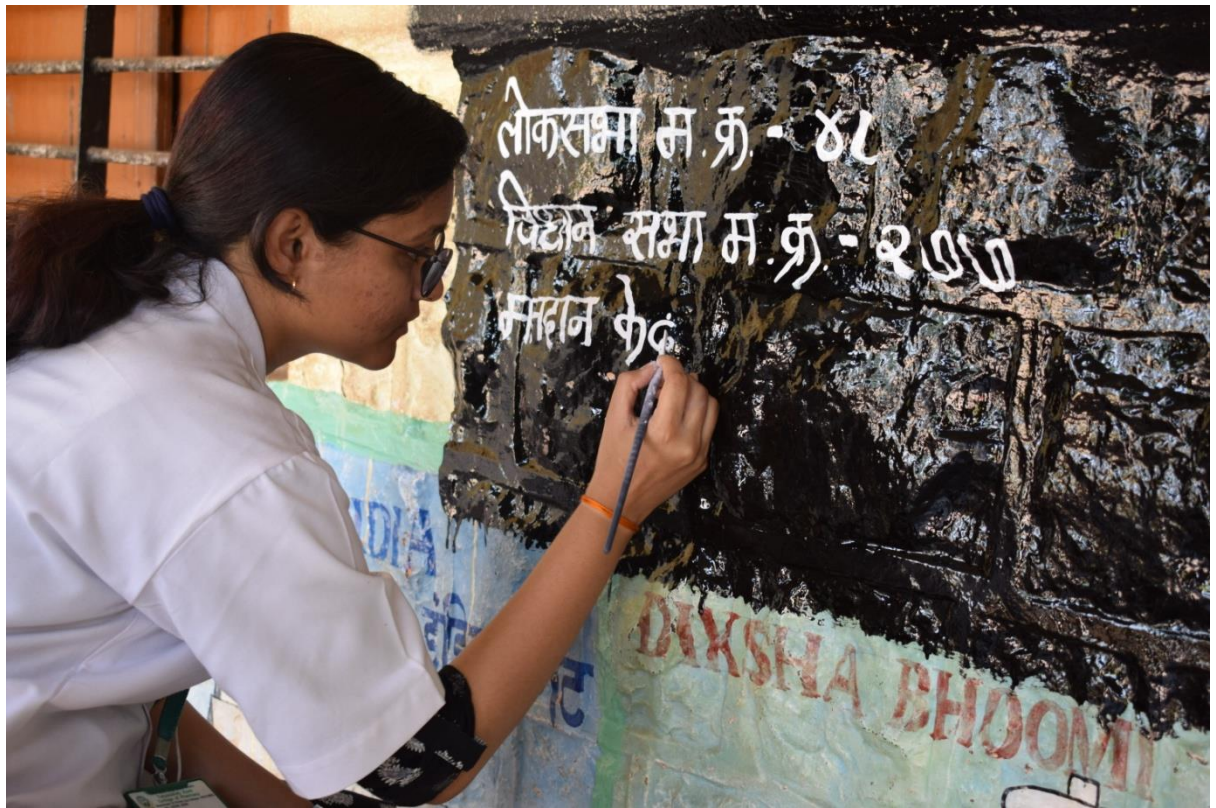 लोकसभा म.क्र. - ४८
विधान सभा म.क्र. - २७७
मतदान कें
DIKSHA BHOOMI